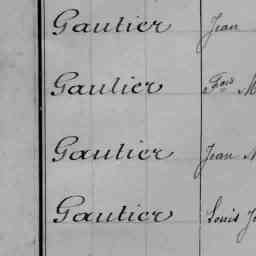 Gautier Jean
Gautier Fois M
Gautier Jean M
Gautier Louis J